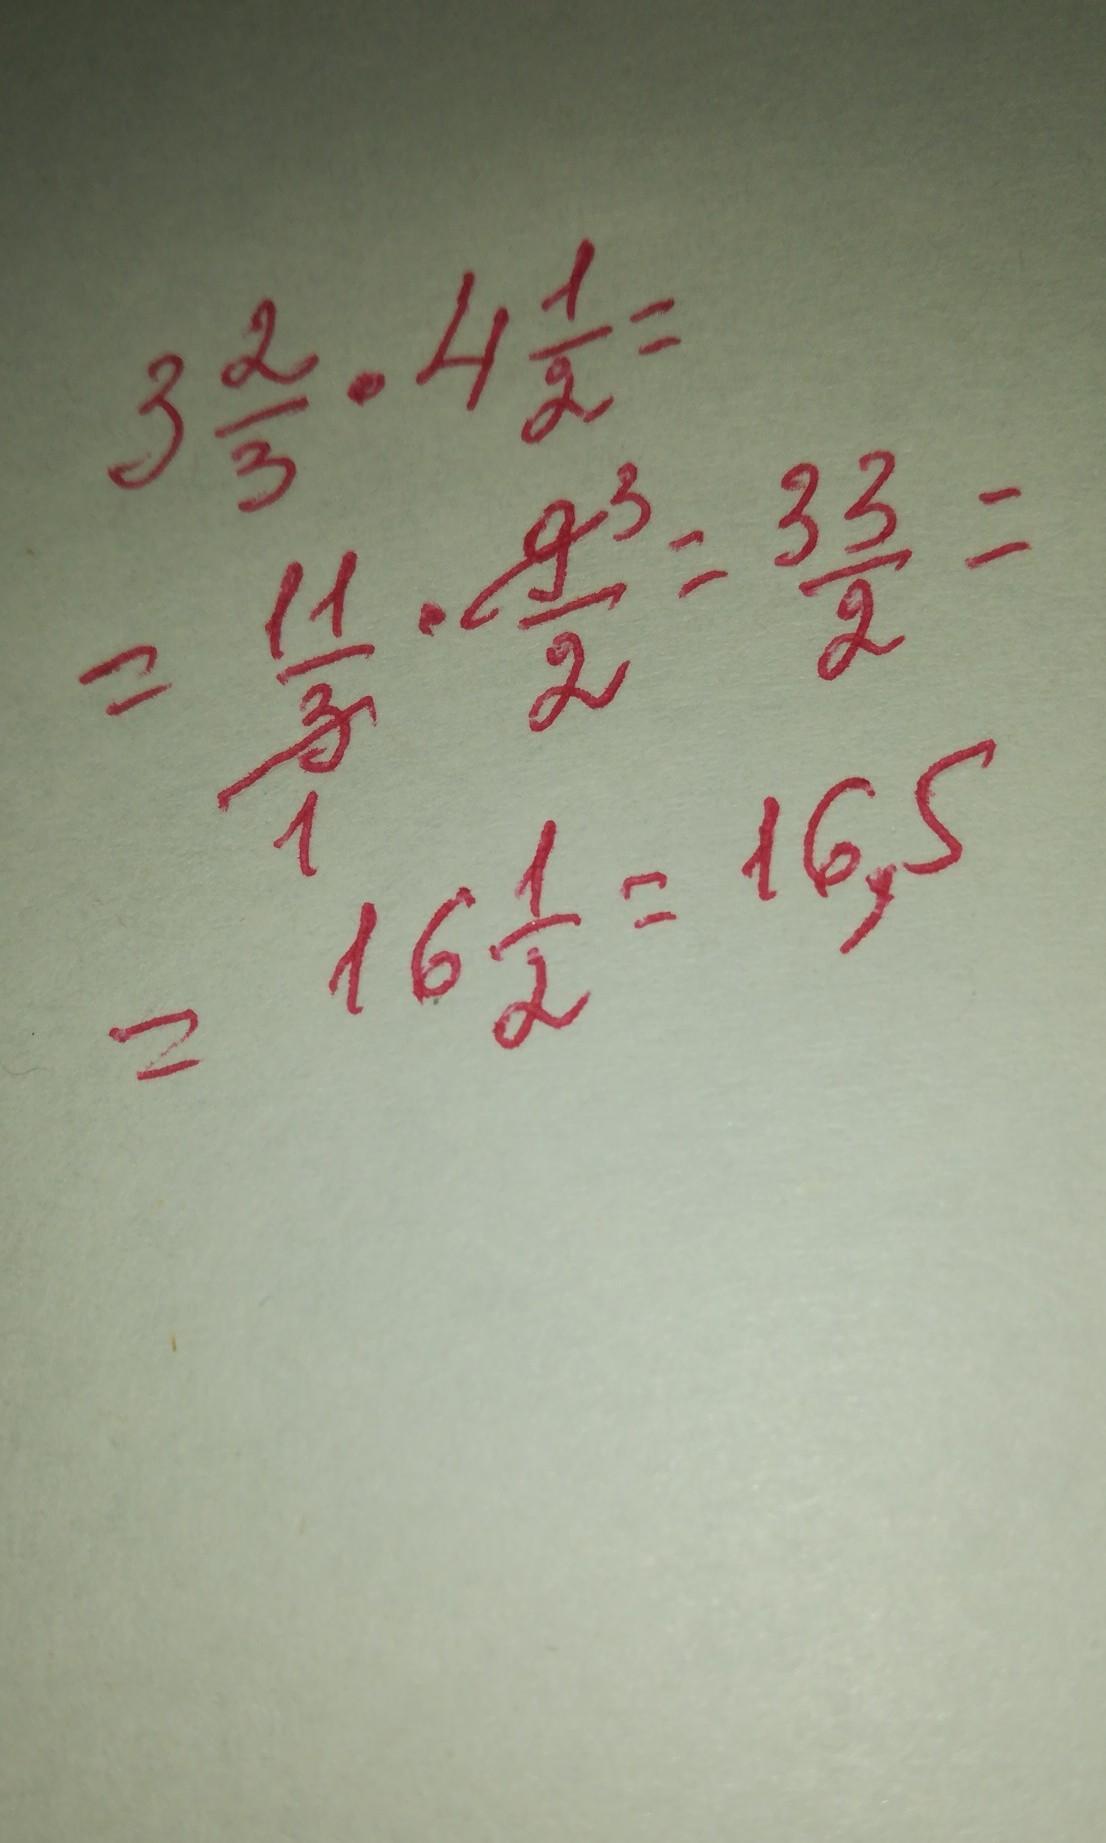 3 2/3 · 4 1/2 =
= 11/3 1 · 9 3/2 = 33/2 =
= 16 1/2 = 16,5